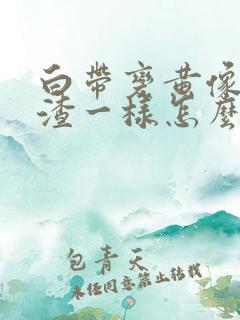 白带变黄像
渣一样怎么
包青天
未经同意禁止转载